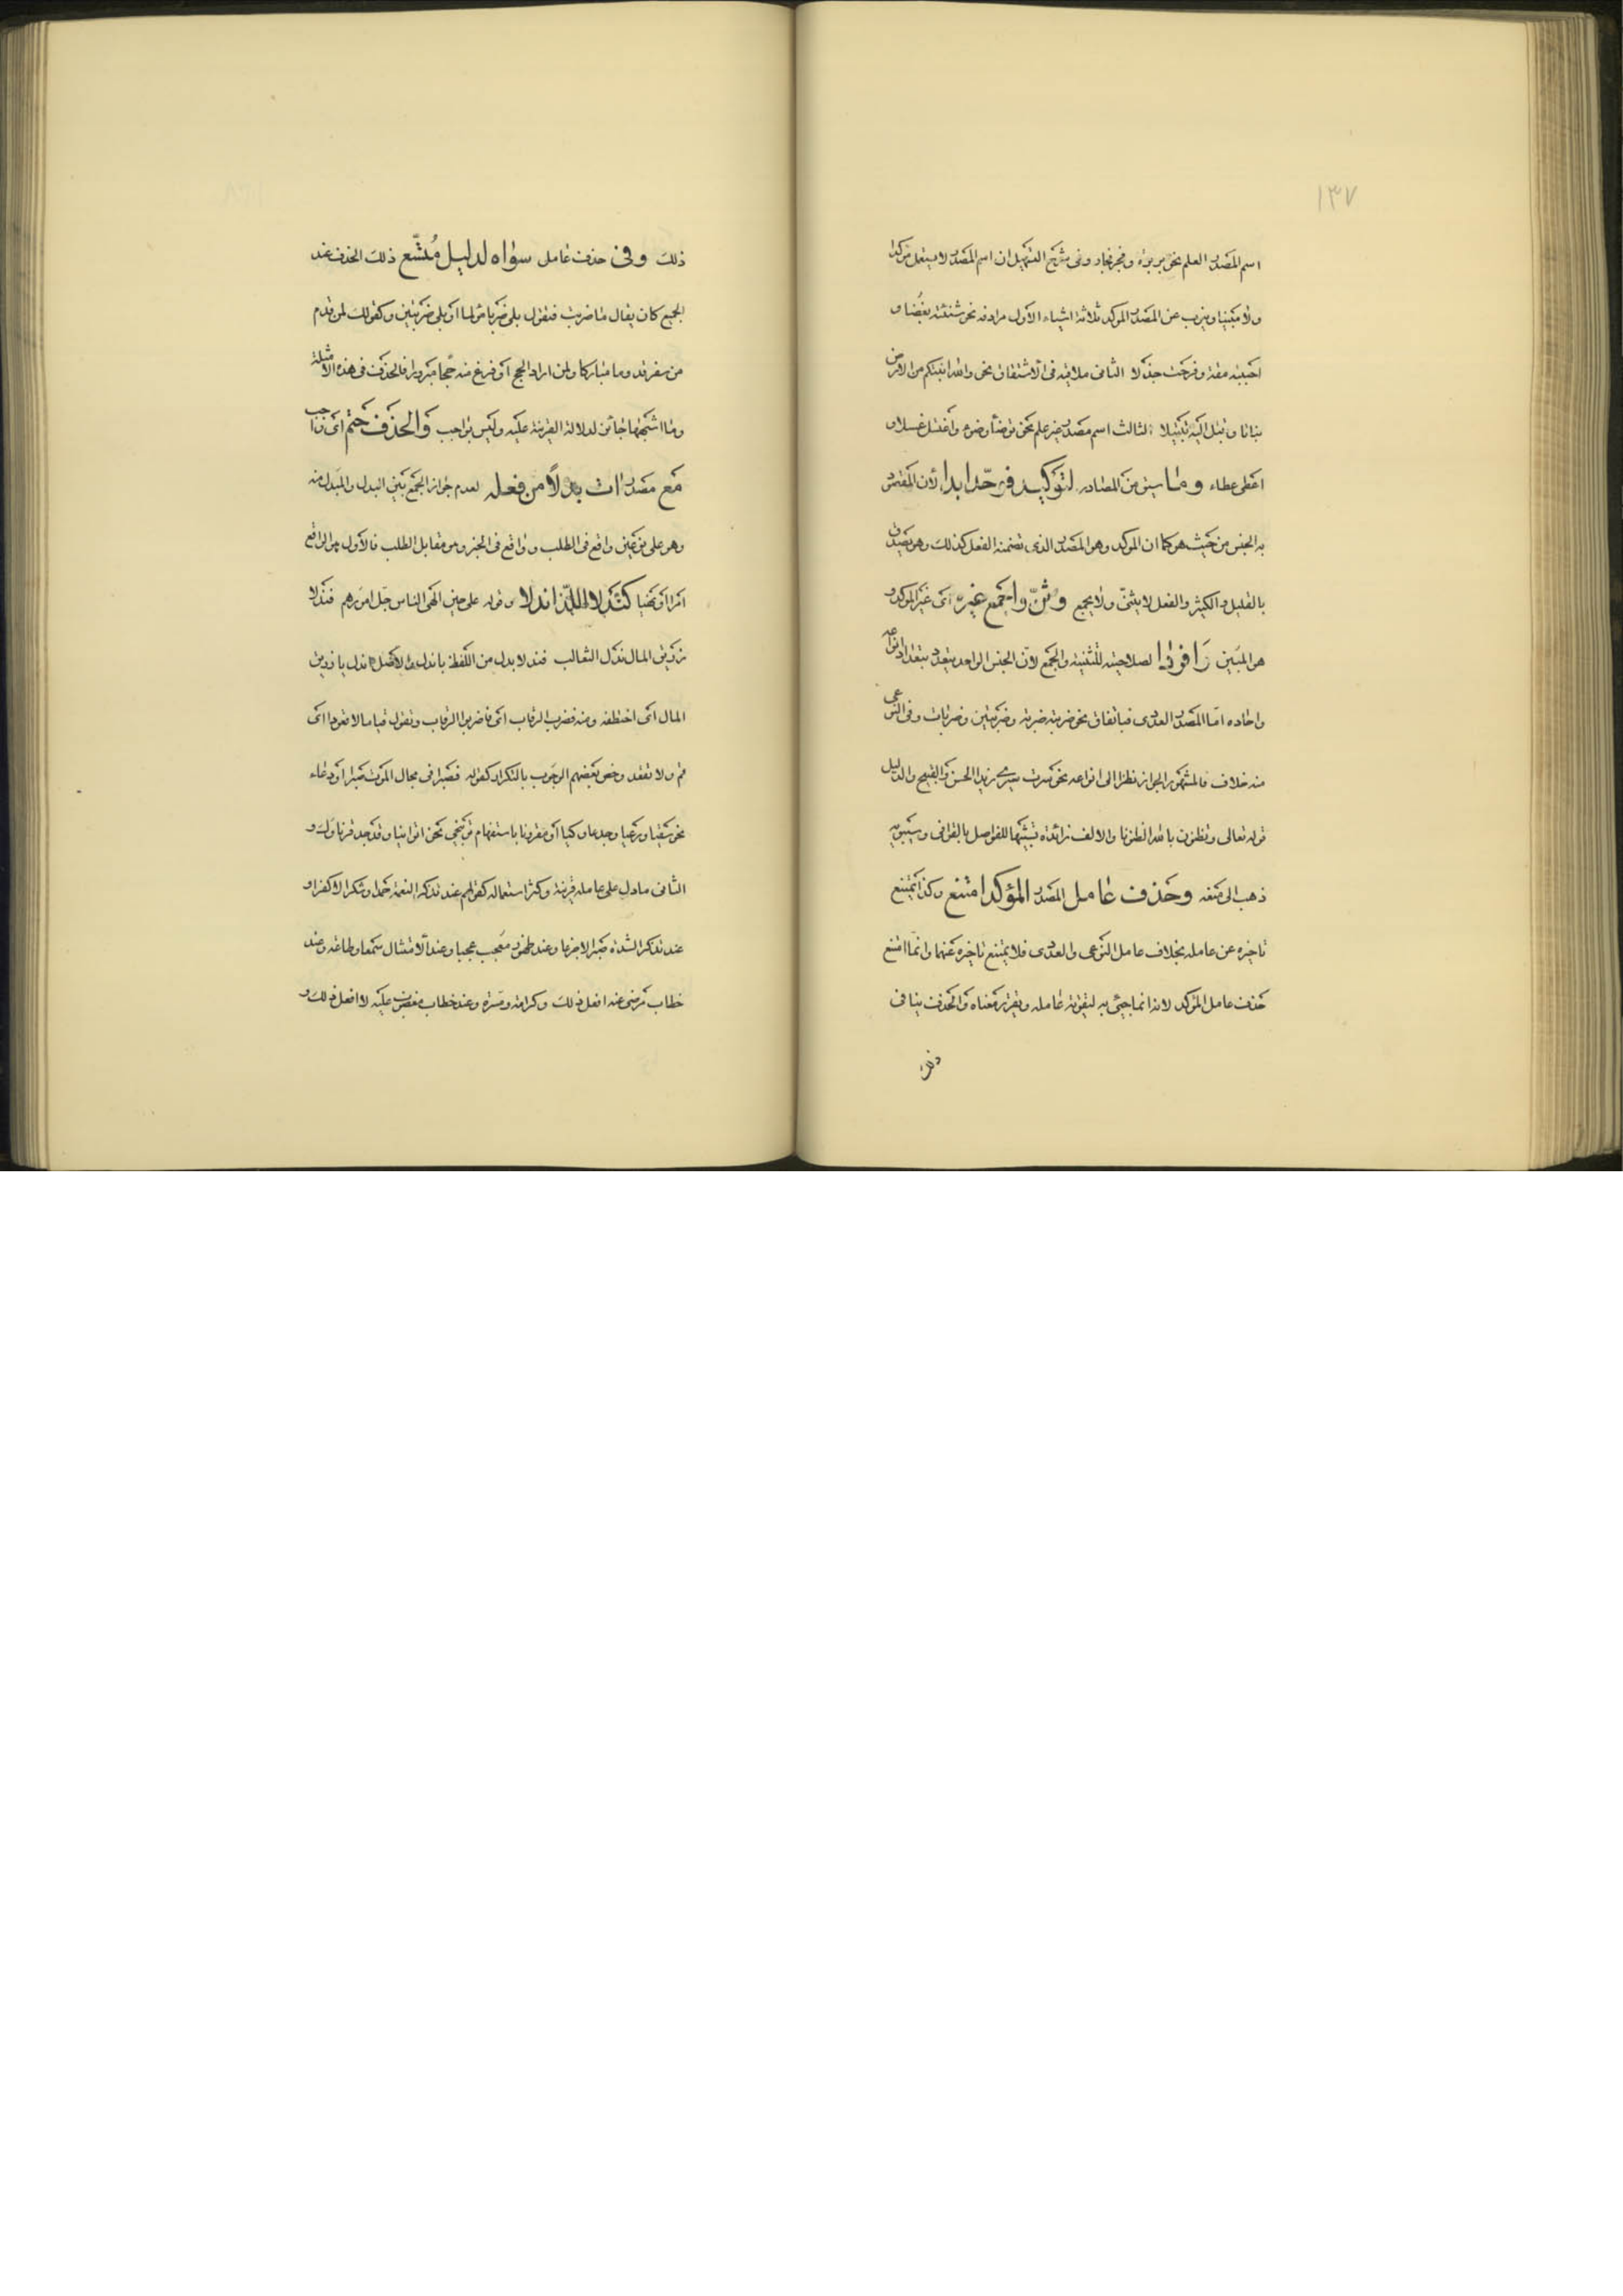 ١٣٧
اسم المصدر العلم نحو بر برة وفجر فجار وفى شرح التسهيل ان اسم المصدر لا يستعمل مؤكدا
ولا مبينا وينوب عن المصدر المؤكد ثلاثة اشياء الأول مرادفه نحو شنئته بغضا و
احببته مقة وفرحت جذلا الثانى ملاقيه فى الاشتقاق نحو والله انبتكم من الارض
نباتا وتبتل اليه تبتيلا الثالث اسم مصدر غير علم نحو توضأ وضوء واغتسل غسلا و
اعطى عطاء وما سيق من المصادر لتوكيد فوحّد ابدا لأن المقصود
به الجنس من حيث هو كما ان المؤكد وهو المصدر الذى تضمنه الفعل كذلك وهو يصدق
بالقليل والكثير والفعل لا يثنىّ ولا يجمع وثنّ واجمع غيره اى غير المؤكد و
هو المبين وافردا لصلاحيته للتثنية والجمع لأنّ الجنس الواحد يتعدد بتعدد انواعه
واحاده امّا المصدر العددى فباتفاق نحو ضربته ضربة وضربتين وضربات وفى النوعى
منه خلاف فالمشهور الجواز نظرا الى انواعه نحو سرت سيرى زيد الحسن والقبيح والدليل
قوله تعالى وتظنون بالله الظنونا والالف زائدة تشبيها للفواصل بالقوافى وسيبويه
ذهب الى منعه وحذف عامل المصدر المؤكد امتنع وكذا يمتنع
تاخيره عن عامله بخلاف عامل النوعى والعددى فلا يمتنع تاخيره عنهما وانّما امتنع
حذف عامل المؤكد لانه انما جيئ به لتقوية عامله وتقرير معناه والحذف ينافى
ذلك
ذلك وفى حذف عامل سواه لدليل مُتّسَع ذلك الحذف عند
الجميع كان يقال ما ضربت فتقول بلى ضربا مؤلما او بلى ضربتين وكقولك لمن قدم
من سفر قدوما مباركا ولمن اراد الحج او فرغ منه حجا مبرورا فالحذف فى هذه الأمثلة
وما اشبهها جائز لدلالة القرينة عليه وليس بواجب والحذف حتم اى واجب
مع مصدر ات بدلاً من فعله لعدم جواز الجمع بين البدل والمبدل منه
وهو على نوعين واقع فى الطلب وواقع فى الخبر وهو مقابل الطلب فالأول هو الواقع
امرا او نهيا كندلا اللّذ اندلا وقوله على حين الهى الناس جل امورهم فندلا
زريق المال ندل الثعالب فندلا بدل من اللفظ باندل والاصل اندل يا زريق
المال اى اختطفه ومنه فضرب الرقاب اى فاضربوا الرقاب وتقول قياما لا قعودا اى
قم ولا تقعد وخص بعضهم الوجوب بالتكرار كقوله فصبرا فى مجال الموت صبرا او دعاء
نحو سقيا ورعيا وجدعا وكيا او مقرونا باستفهام توبيخى نحو اتوانيا وقد جد قرناؤك و
الثانى ما دل على عامله قرينة وكثر استعماله كقولهم عند تذكر النعمة حمدا وشكرا لا كفرا و
عند تذكر الشدة صبرا لا جزعا وعند ظهور معجب عجبا وعند الامتثال سمعا وطاعة وعند
خطاب مرضى عنه افعل ذلك وكرامة ومسرة وعند خطاب مغضوب عليه لا افعل ذلك و